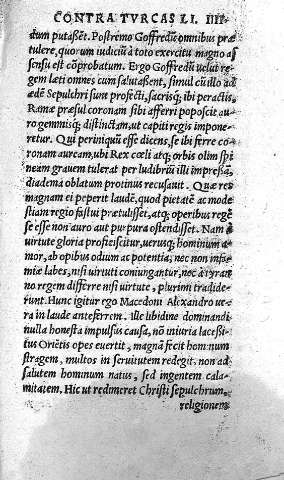 CONTRA TVRCAS LI. IIII
dum putassẽt. Postremo Goffredũ omnibus præ
tulere, quorum iudiciũ à toto exercitu magno as
sensu est cõprobatum. Ergo Goffredũ uelut re
gem læti omnes cum salutassent, simul cũ illo ad
ædẽ Sepulchri sunt profecti, sacrisq; ibi peractis,
Ramæ præsul coronam sibi afferri poposcit au
ro gemmisq; distinctam, ut capiti regis impone
retur. Qui periniquũ esse dicens, se ibi ferre co
ronam auream, ubi Rex cœli atq; orbis olim spi
neam grauem tulerat per ludibriũ illi impressã,
diadema oblatum protinus recusauit. Quæ res
magnam ei peperit laudẽ, quod pietatẽ ac mode
stiam regio fastui prætulisset, atq; operibus regẽ
se esse non auro aut purpura ostendisset. Nam à
uirtute gloria proficiscitur, uerusq; hominum a
mor, ab opibus odium ac potentia, nec non infa
miæ labes, nisi uirtuti coniungantur, nec à tyran
no regem differre nisi uirtute, plurimi tradide
runt. Hunc igitur ego Macedoni Alexandro ue
ra in laude anteferrem. Ille libidine dominandi
nulla honesta impulsus causa, nõ iniuria lacessi
tus Oriẽtis opes euertit, magnã fecit hominum
stragem, multos in seruitutem redegit. non ad
salutem hominum natus, sed ingentem cala
mitatem. Hic ut redimeret Christi sepulchrum,
religionem